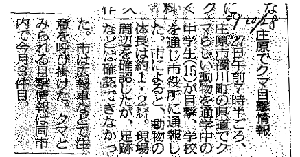 29.10.28
庄原でクマ目撃情報
27日午前7時半ごろ、
庄原市濁川町の県道でク
マらしい動物を通学中の
中学生(15)が目撃、学校
を通じ市役所に通報し
た。市によると、動物の
体長は約1・2㍍。現場
周辺を確認したが、足跡
などは確認できなかっ
た。市は広報車などで注
意を呼び掛けた。クマと
みられる目撃情報は同市
内で今月3件目。